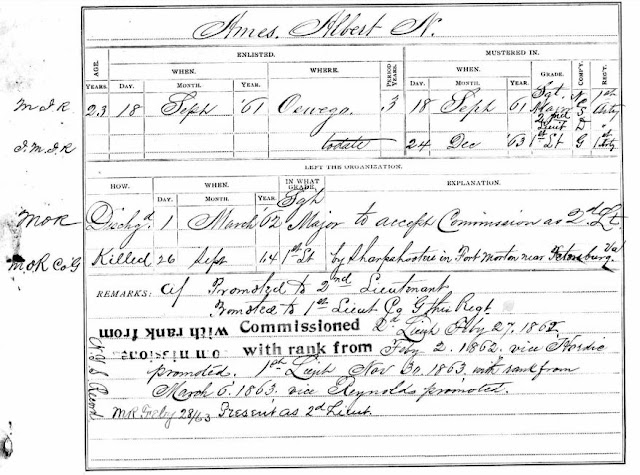 Ames, Albert N.
ENLISTED. MUSTERED IN.
AGE. WHEN. WHERE. PERIOD WHEN. GRADE. COMP'Y. REG'T.
YEARS. DAY. MONTH. YEAR. YEARS. DAY. MONTH. YEAR.
M I R 23 18 Sept '61 Oswego 3 18 Sept 61 Sgt. Major N C S 1st Arty
2nd Lieut
to date 24 Dec '63 1st Lt G 1st Arty
LEFT THE ORGANIZATION.
HOW. WHEN. IN WHAT GRADE. EXPLANATION.
DAY. MONTH. YEAR.
M O R Dischgd. 1 March '62 Sgt Major to accept Commission as 2d Lt
M O R Co G Killed 26 Sept 64 1st Lt by Sharpshooters in Fort Morton near Petersburg Va
REMARKS: Promoted to 2nd Lieutenant
Promoted to 1st Lieut Co G this Regt.
Commissioned 2d Lieut Feby 27. 1862.
with rank from
with rank from Feby 2. 1862. vice
promoted. 1st Lieut Nov 30. 1863. with rank from
March 6. 1863. vice Reynolds promoted.
MR Feby 28/63 Present as 2d Lieut.